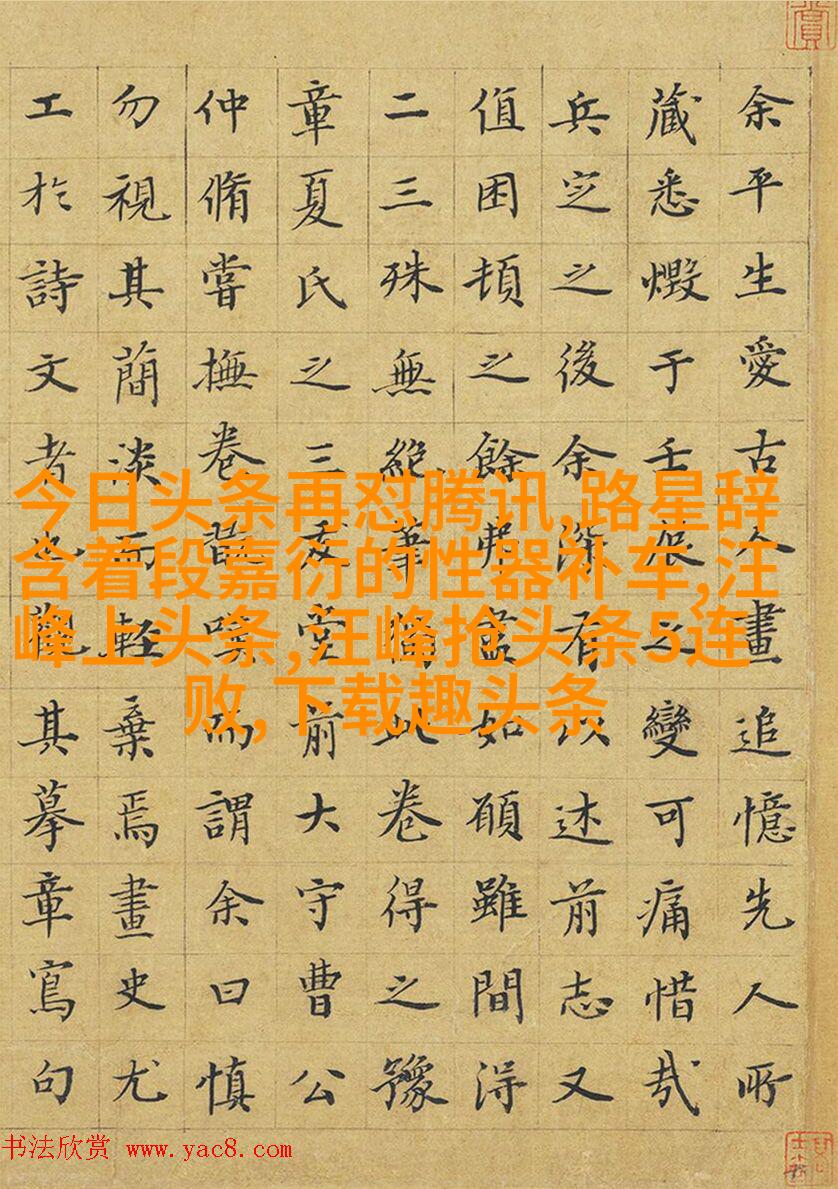 余平生愛古人畫追憶先人所
藏悉燬于壬辰之變可痛惜哉
兵定之後余深有以述前志又
值困頓之餘弗盡如願雖間得
二三殊無絕筆獨此卷得之豫
章夏氏之三友堂前大守曹公
仲脩嘗撫卷嘆而謂余曰慎
勿視其簡淡而輕棄焉畫史尤
工於詩文者也觀其摹章寫句
今日头条再怼腾讯,路星辞
含着段嘉衍的性器补车,汪
峰上头条,汪峰抢头条5连
败,下载趣头条
书法欣赏 www.yac8.com